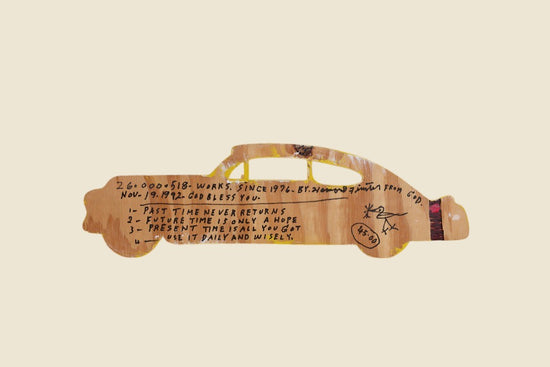 26.000.518- WORKS. SINCE 1976. BY. Howard Finster FROM GOD.
NOV. 19. 1992. GOD BLESS YOU.
1- PAST TIME NEVER RETURNS
2- FUTURE TIME IS ONLY A HOPE
3- PRESENT TIME IS ALL YOU GOT
4- USE IT DAILY AND WISELY.
45.00